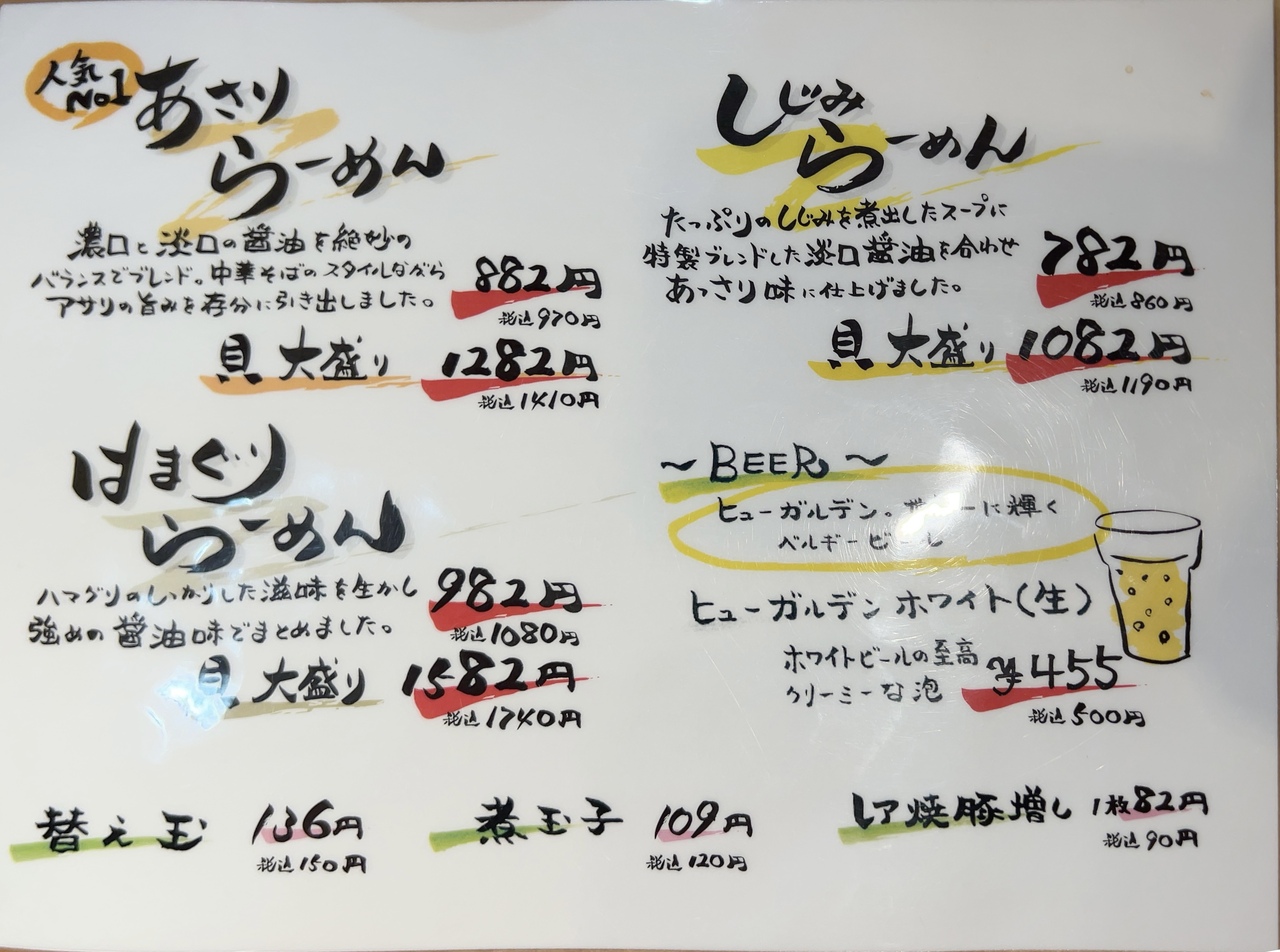 人気
No1
あさり
らーめん
濃口と淡口の醤油を絶妙の
バランスでブレンド。中華そばのスタイルながら
アサリの旨みを存分に引き出しました。
882円
税込970円
貝 大盛り 1282円
税込1410円
しじみ
らーめん
たっぷりのしじみを煮出したスープに
特製ブレンドした淡口醤油を合わせ
あっさり味に仕上げました。
782円
税込860円
貝 大盛り 1082円
税込1190円
はまぐり
らーめん
ハマグリのしっかりした滋味を生かし
強めの醤油味でまとめました。
982円
税込1080円
貝 大盛り 1582円
税込1740円
～BEER～
ヒューガルデン。 ーに輝く
ベルギービール
ヒューガルデン ホワイト(生)
ホワイトビールの至高
クリーミーな泡
¥455
税込500円
替え玉 136円
税込150円
煮玉子 109円
税込120円
レア焼豚増し 1枚82円
税込90円